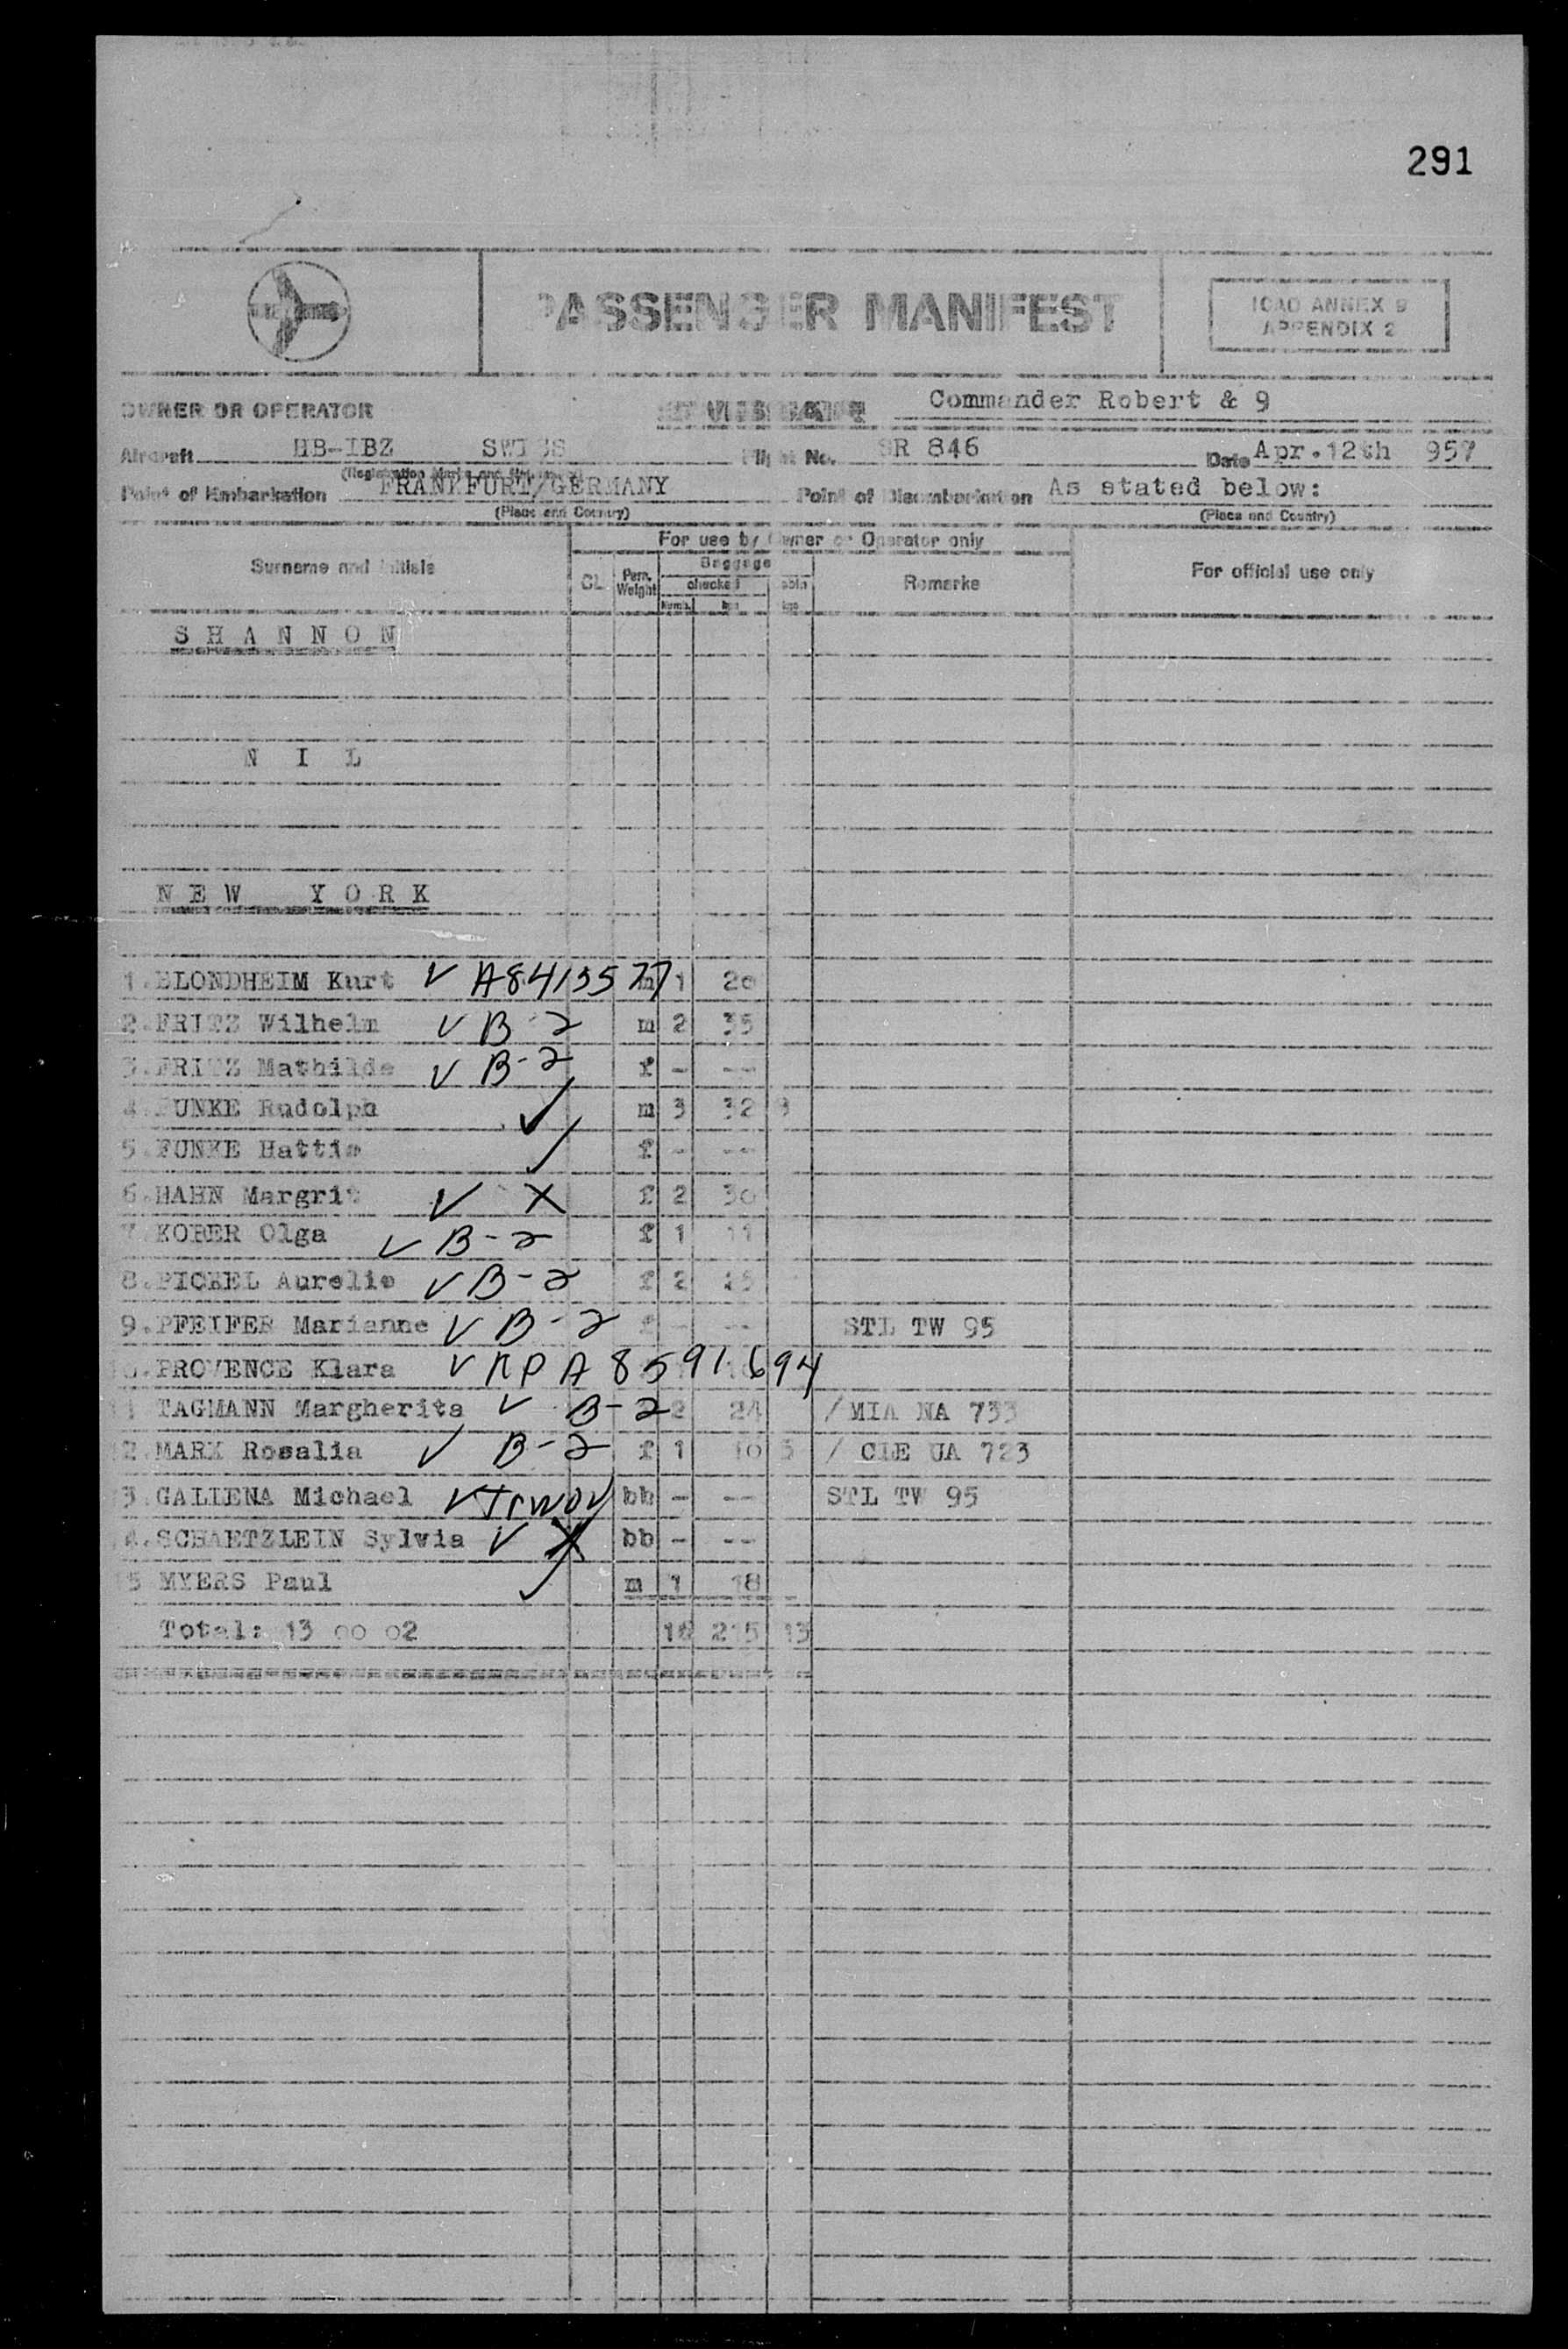 291
PASSENGER MANIFEST
ICAO ANNEX 9
APPENDIX 2
OWNER OR OPERATOR Commander Robert & 9
Aircraft HB-IBZ SWISS Flight No. SR 846 Date Apr.12th 957
(Registration Marks and Nationality)
Point of Embarkation FRANKFURT/GERMANY Point of Disembarkation As stated below:
(Place and Country) (Place and Country)
For use by Owner or Operator only
Surname and Initials CL Pers. Weight Baggage Remarks For official use only
checked cabin
Numb. kgs kgs
SHANNON
NIL
NEW YORK
1.BLONDHEIM Kurt ✓ A8413577 m 1 20
2.FRITZ Wilhelm ✓ B-2 m 2 35
3.FRITZ Mathilde ✓ B-2 f - --
4.FUNKE Rudolph ✓ m 3 32 8
5.FUNKE Hattie ✓ f - --
6.HAHN Margrit ✓ X f 2 30
7.KOBER Olga ✓ B-2 f 1 11
8.PICKEL Aurelie ✓ B-2 f 2 15
9.PFEIFER Marianne ✓ B-2 f - -- STL TW 95
0.PROVENCE Klara ✓ A8591694
11 TAGMANN Margherita ✓ B-2 2 24 /MIA NA 733
2.MARX Rosalia ✓ B-2 f 1 10 5 / CLE UA 723
3.GALIENA Michael ✓ bb - -- STL TW 95
4.SCHAETZLEIN Sylvia ✓ X bb - --
15 MYERS Paul ✓ m 1 18
Total: 13 00 02 16 215 13